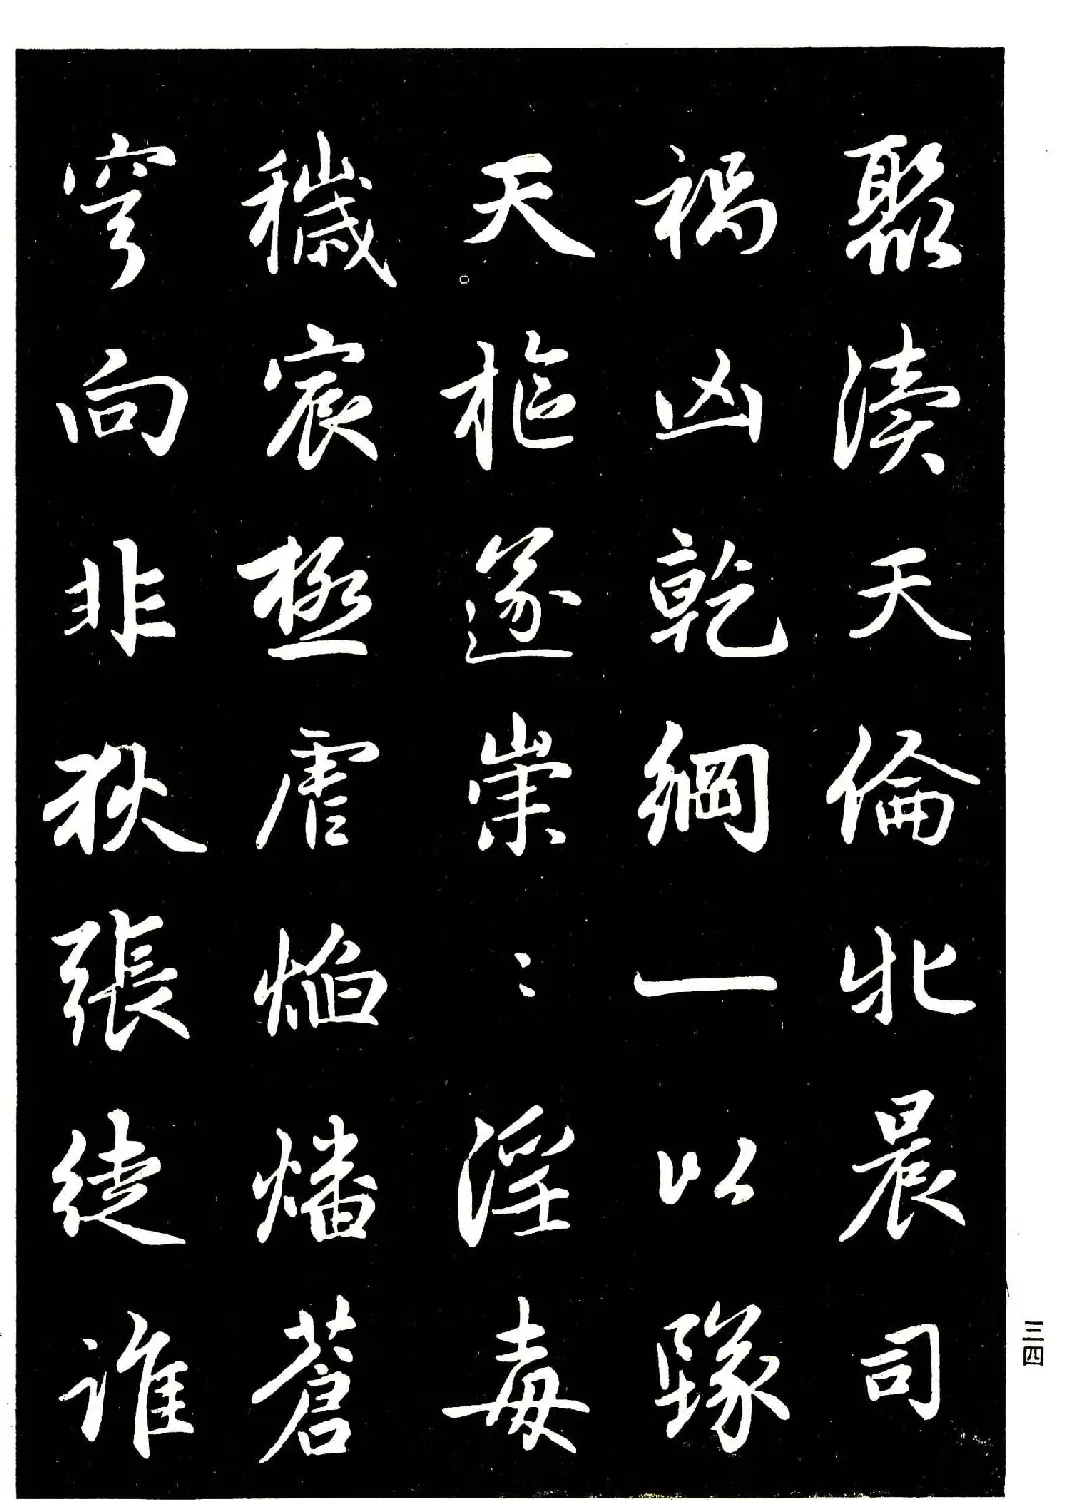 聚渎天倫牝晨司
禍凶乾綱一以隊
天柩遂崇〻淫毒
穢宸極虐焰燔蒼
穹向非狄張徒誰
三四